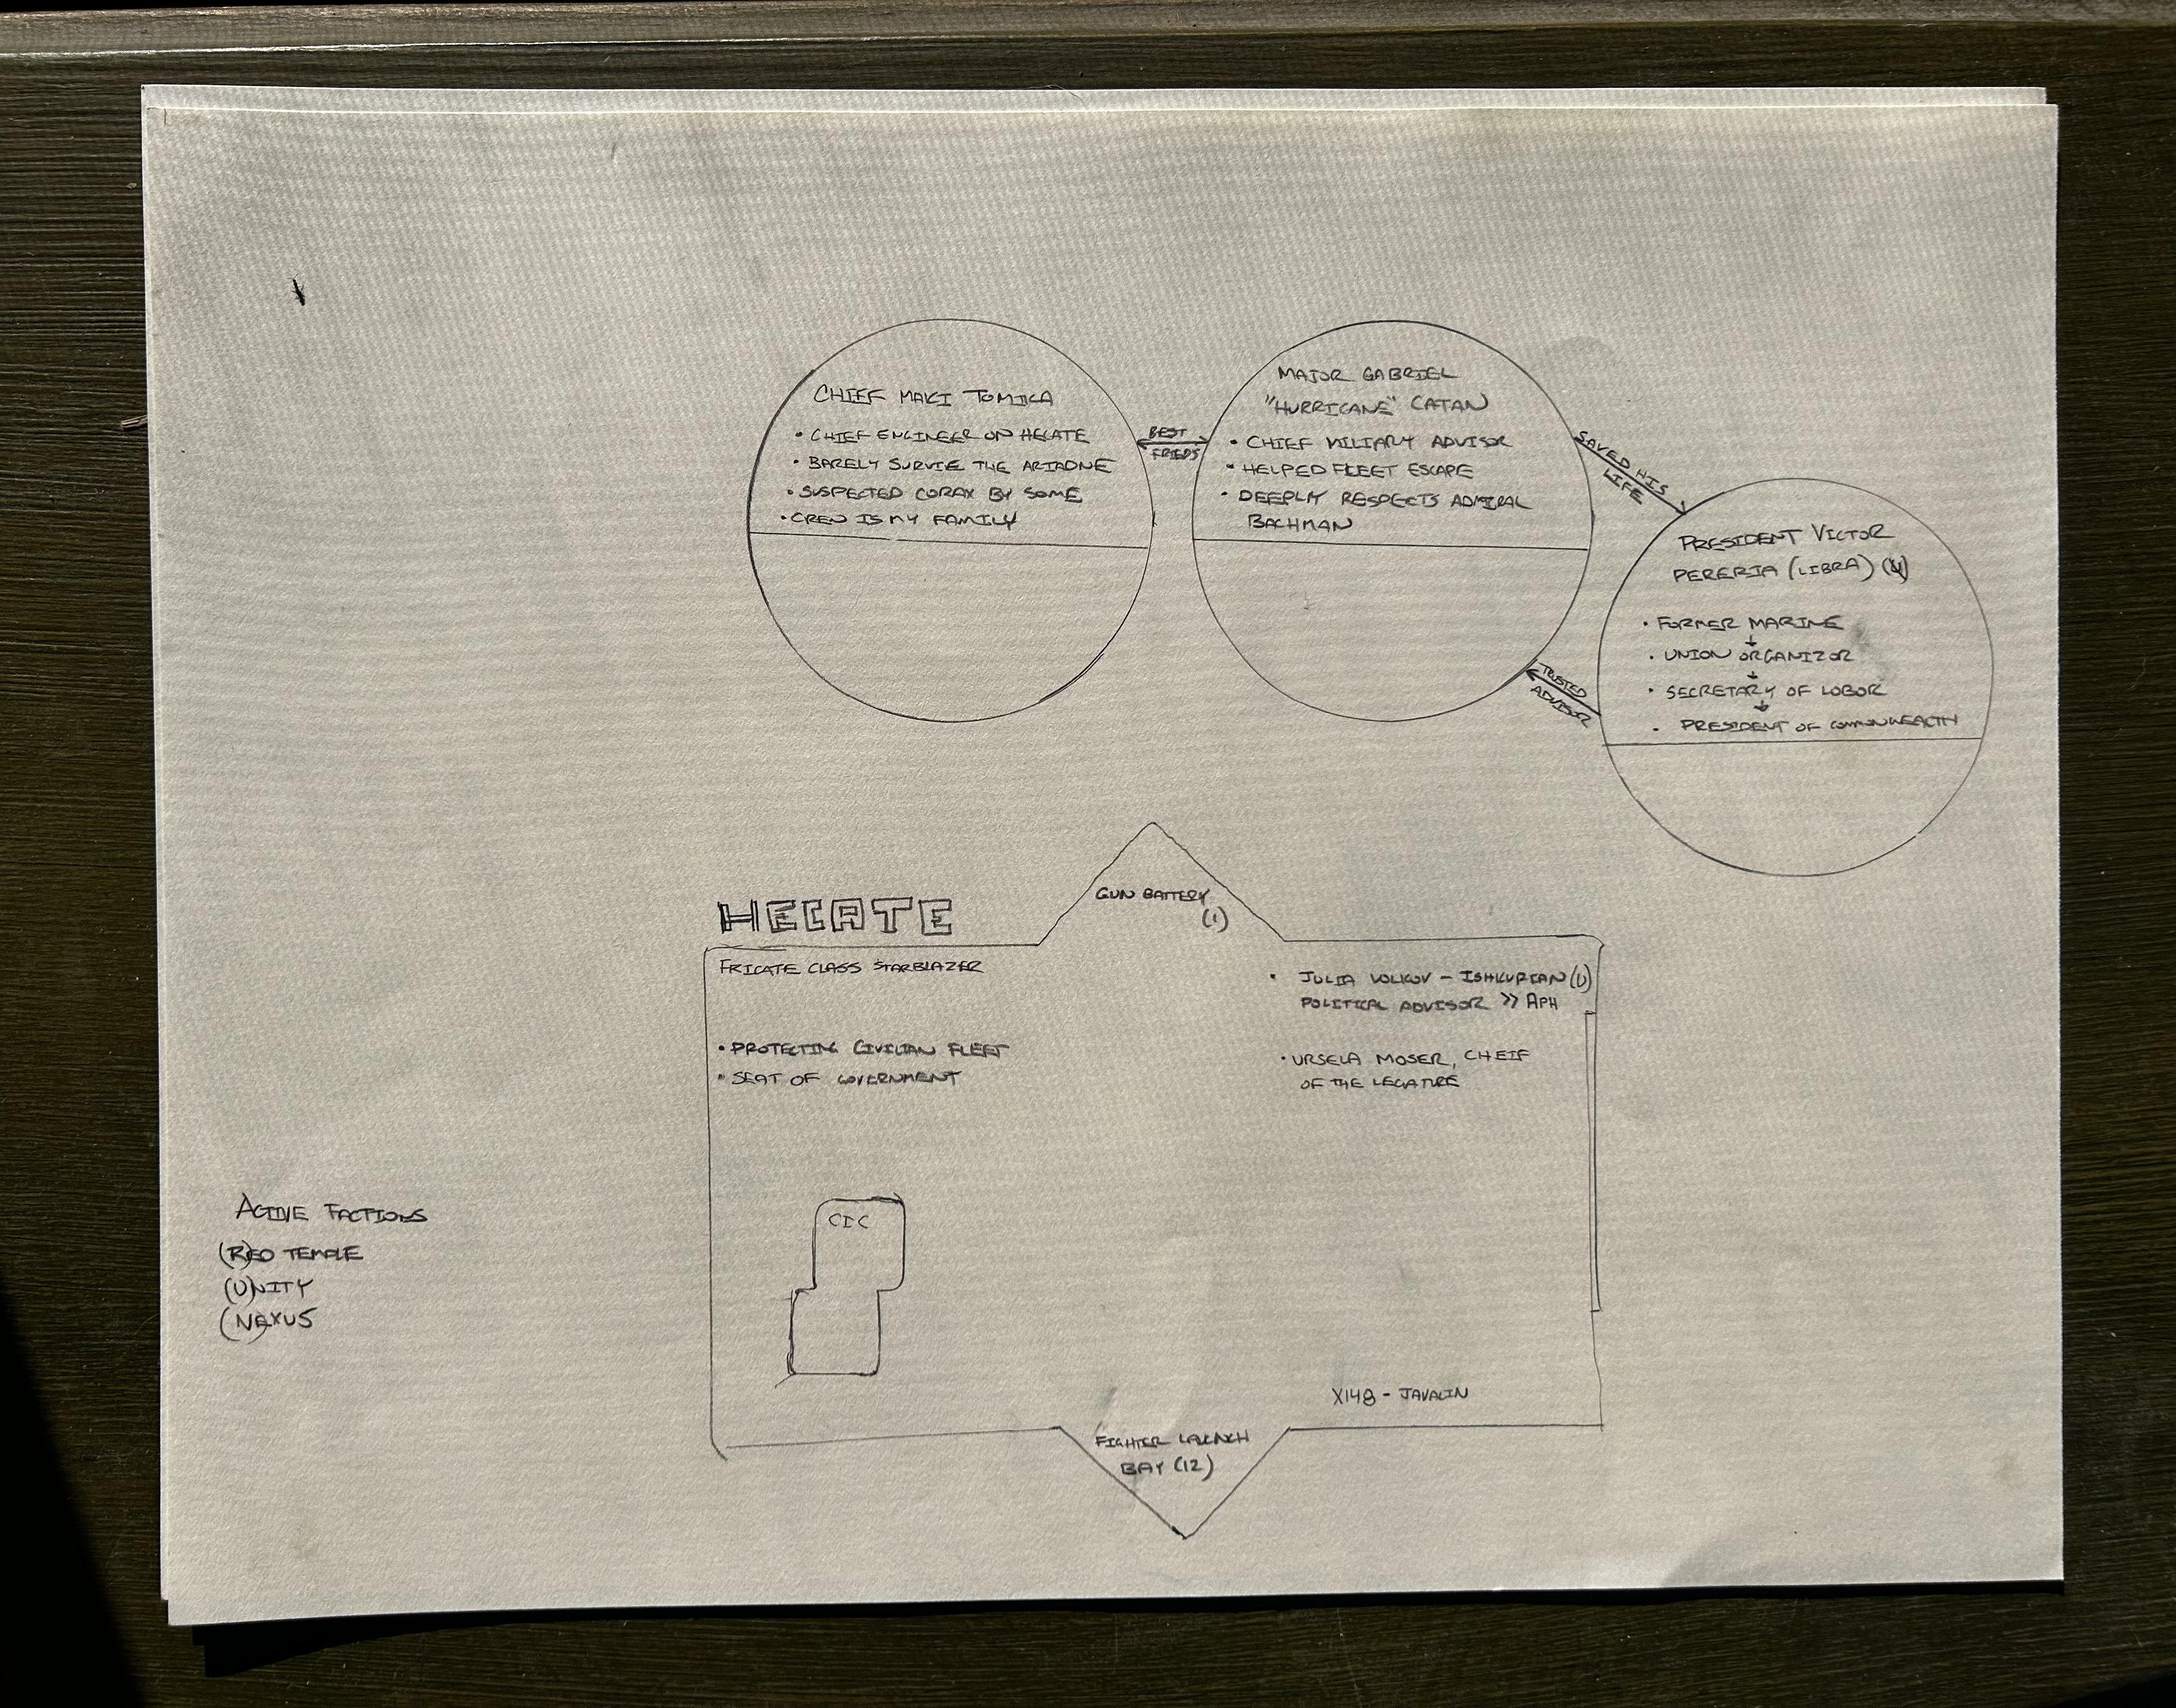 CHIEF MAKI TOMIKA
• CHIEF ENGINEER ON HECATE
• BARELY SURVIE THE ARIADNE
• SUSPECTED CORAX BY SOME
• CREW IS MY FAMILY
BEST
FRIEDS
MAJOR GABRIEL
"HURRICANE" CATAN
• CHIEF MILITARY ADVISOR
• HELPED FLEET ESCAPE
• DEEPLY RESPECTS ADMIRAL
BACHMAN
SAVED HIS
LIFE
TRUSTED
ADVISOR
PRESIDENT VICTOR
PERERIA (LIBRA)
• FORMER MARINE
• UNION ORGANIZOR
• SECRETARY OF LOBOR
• PRESIDENT OF COMMONWEALTH
HECATE
GUN BATTERY
(1)
FRIGATE CLASS STARBLAZER
• PROTECTING CIVILIAN FLEET
• SEAT OF GOVERNMENT
• JULIA VOLKOV - ISHKURIAN (U)
POLITICAL ADVISOR >> APH
• URSELA MOSER, CHEIF
OF THE LEGATURE
CIC
X148 - JAVALIN
FIGHTER LAUNCH
BAY (12)
ACTIVE FACTIONS
(R)ED TEMPLE
(U)NITY
(N)EXUS